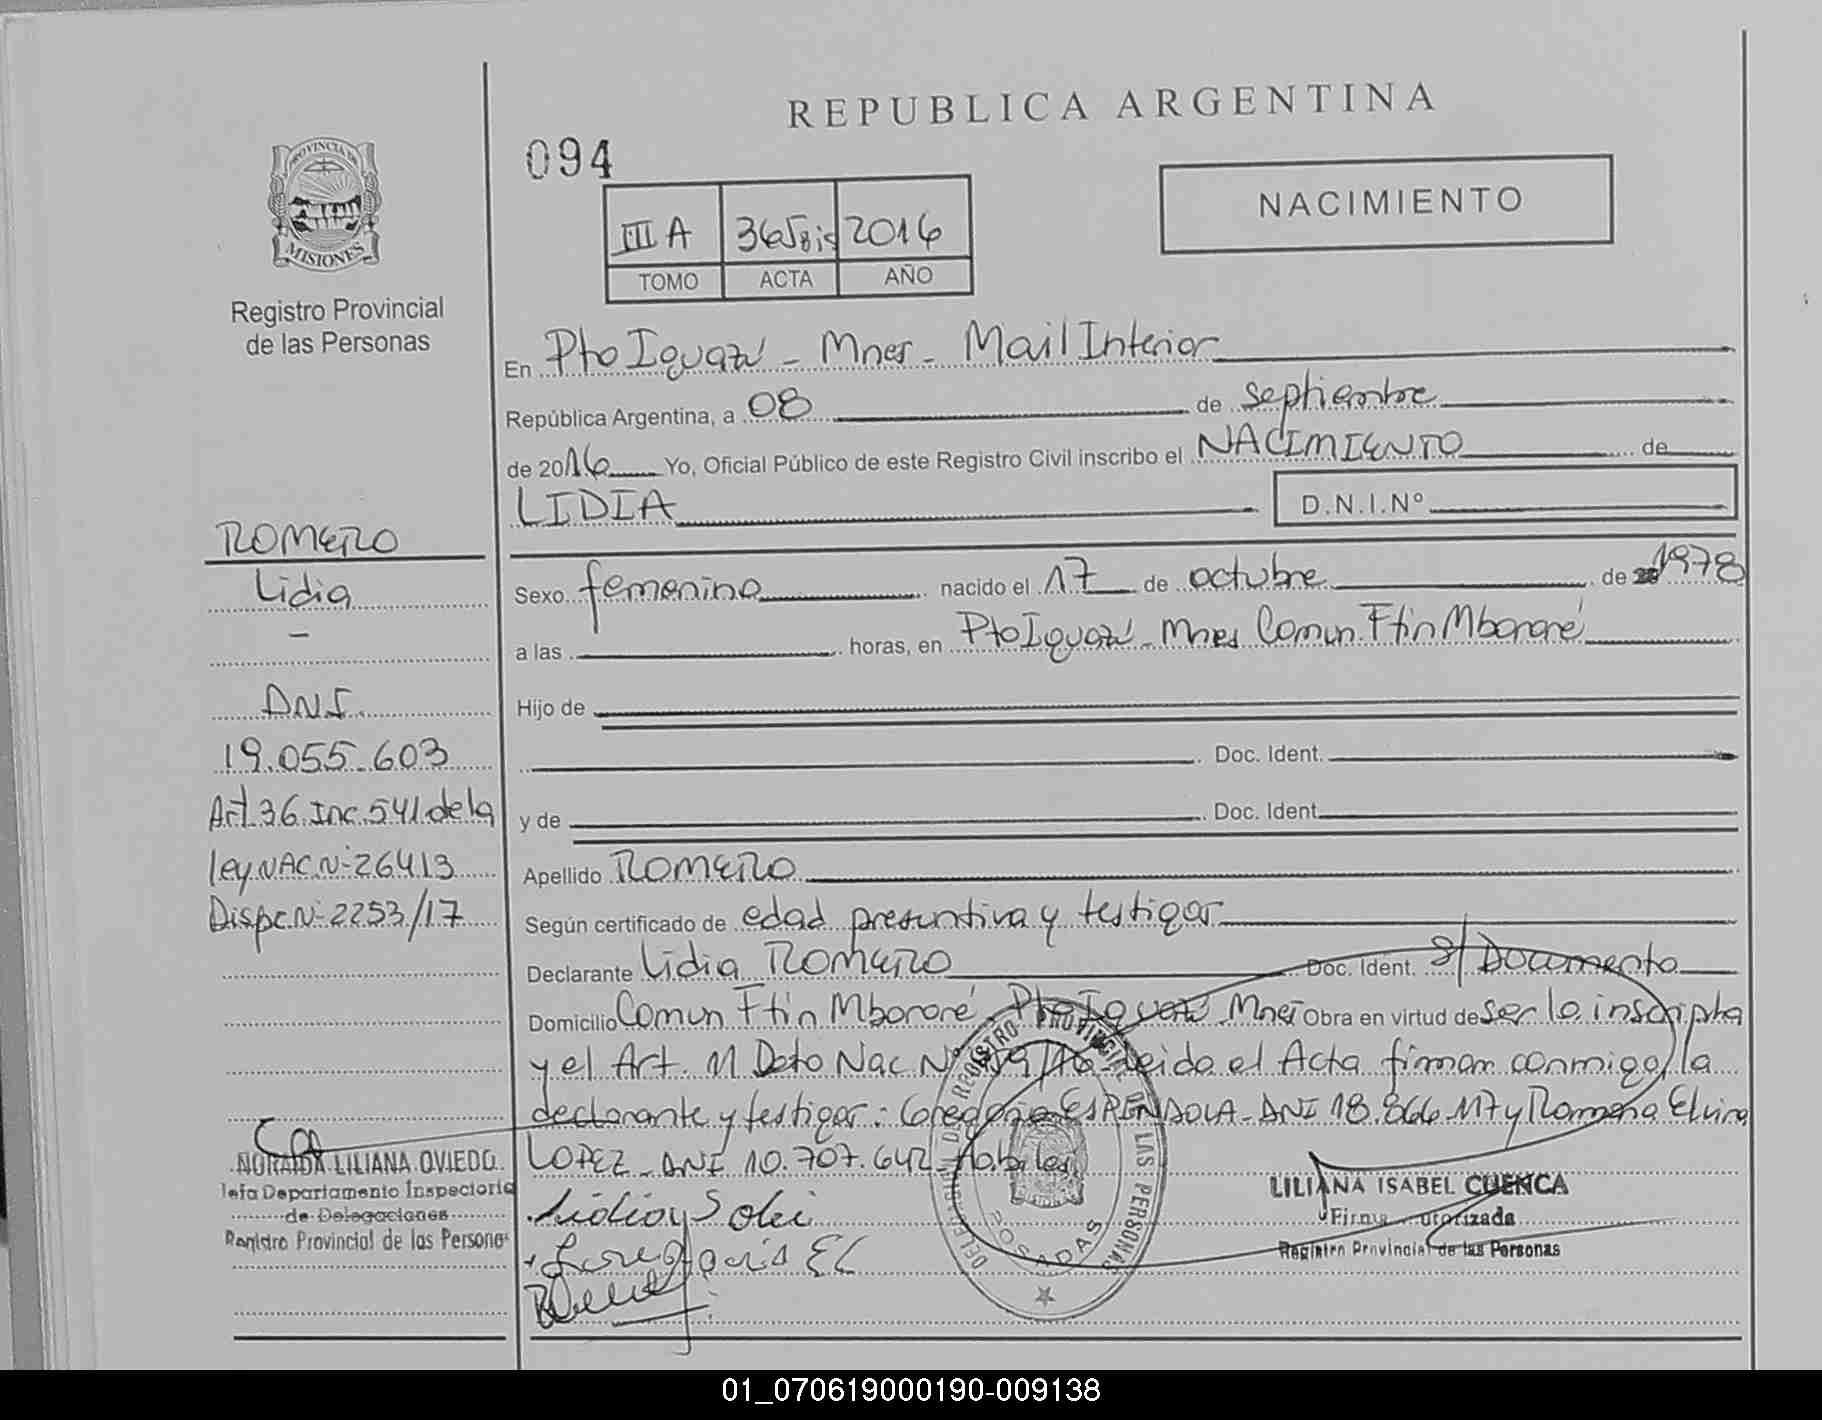 REPUBLICA ARGENTINA
094
NACIMIENTO
III A 365 Bis 2016
TOMO ACTA AÑO
PROVINCIA DE
MISIONES
Registro Provincial
de las Personas
En Pto Iguazú - Mnes - Mail Interior
República Argentina, a 08 de septiembre
de 2016 Yo, Oficial Público de este Registro Civil inscribo el NACIMIENTO de
LIDIA D.N.I.Nº
ROMERO
Lidia
-
DNI.
19.055.603
Art.36.Inc.541.de la
ley NAC.Nº 26413
Dispc.Nº 2253/17
Sexo femenino nacido el 17 de octubre de 1978
a las horas, en Pto Iguazú - Mnes Comun. Ftin Mbororé
Hijo de
Doc. Ident.
y de Doc. Ident.
Apellido ROMERO
Según certificado de edad presuntiva y testigos
Declarante Lidia ROMERO Doc. Ident. s/Documento
Domicilio Comun Ftin Mbororé. Pto Iguazú Mnes Obra en virtud de ser la inscripta
y el Art. 11 Dcto Nac Nº leida el Acta firman conmigo, la
declarante y testigos: ESPINDOLA - DNI 18.866.117 y Romona Elvira
LOPEZ - DNI 10.707.642 - Habiles
NORAIDA LILIANA OVIEDO
Jefa Departamento Inspectoria
de Delegaciones
Registro Provincial de las Personas
DE REGISTRO PROVINCIAL DE LAS PERSONAS
POSADAS
LILIANA ISABEL CUENCA
Firma Autorizada
Registro Provincial de las Personas
01_070619000190-009138